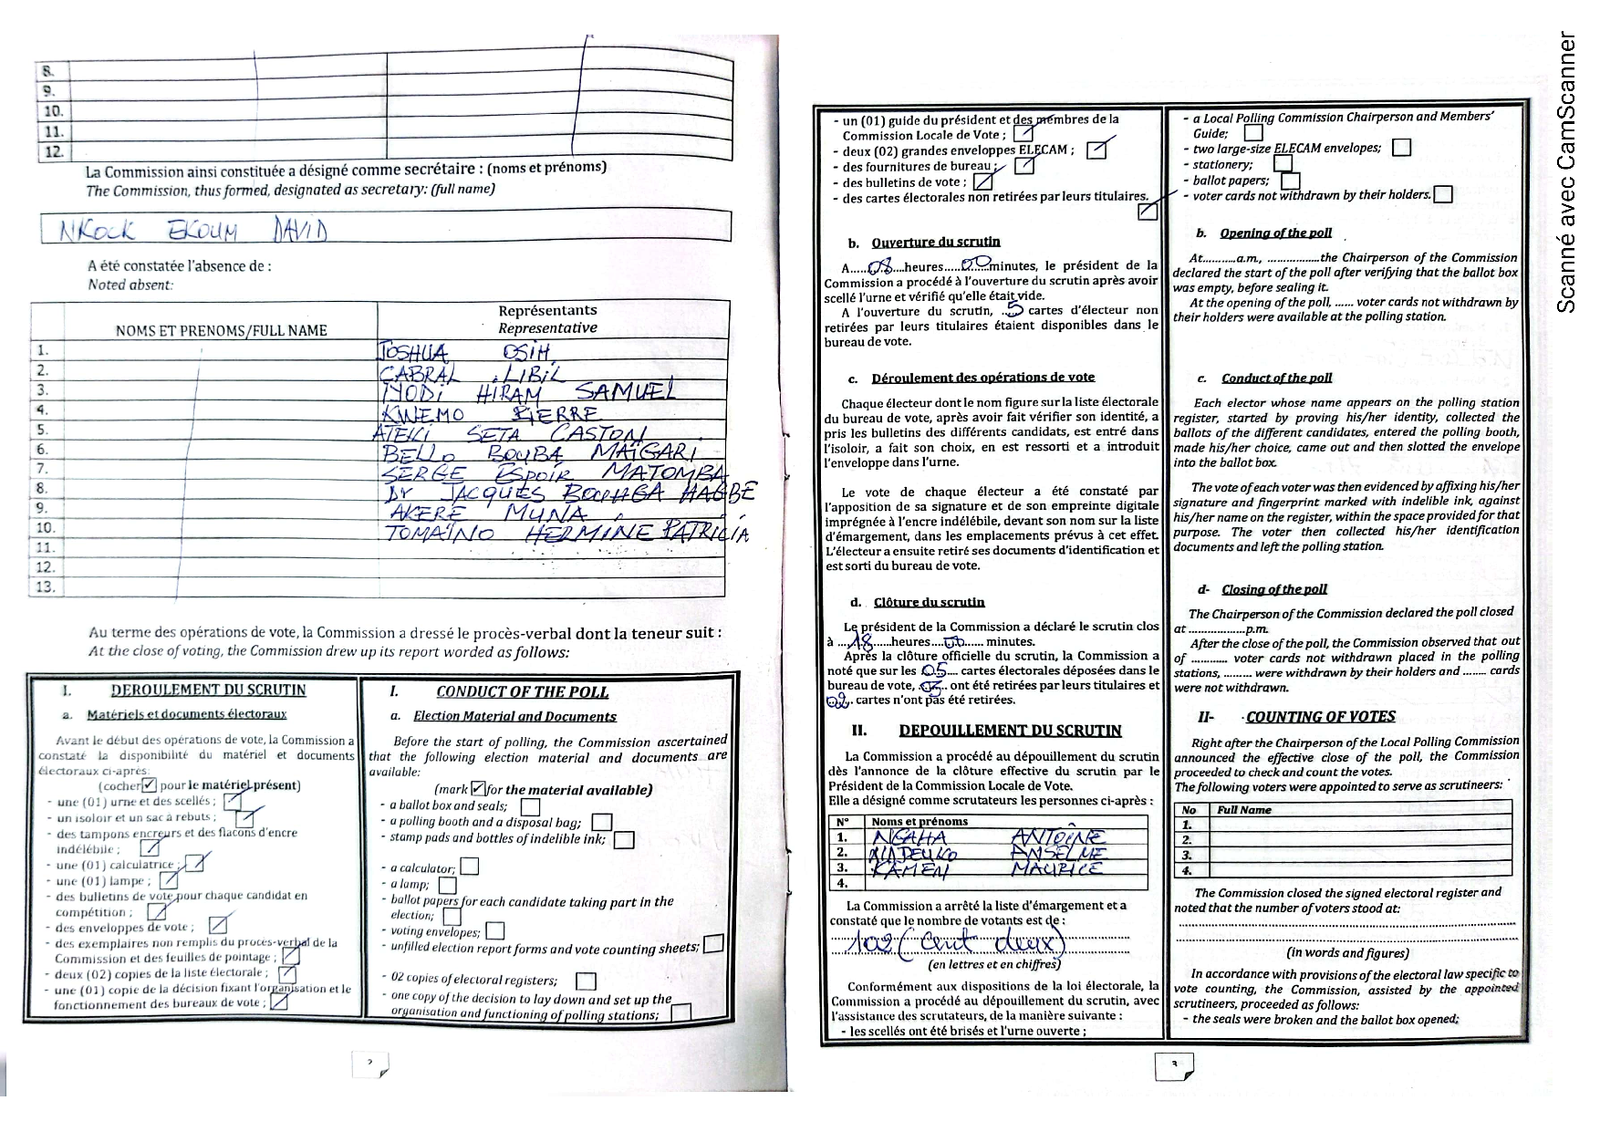 8.
9.
10.
11.
12.
La Commission ainsi constituée a désigné comme secrétaire : (noms et prénoms)
The Commission, thus formed, designated as secretary: (full name)
NKOCK EKOUM DAVID
A été constatée l'absence de :
Noted absent:
NOMS ET PRENOMS/FULL NAME
Représentants
Representative
1. JOSHUA OSIH
2. CABRAL LIBIL
3. IYODI HIRAM SAMUEL
4. KWEMO PIERRE
5. ATEKI SETA CASTON
6. BELLO BOUBA MAÏGARI
7. SERGE ESPOIR MATOMBA
8. Dr JACQUES BOUHGA HAGBE
9. AKERE MUNA
10. TOMAÏNO HERMINE PATRICIA
11.
12.
13.
Au terme des opérations de vote, la Commission a dressé le procès-verbal dont la teneur suit :
At the close of voting, the Commission drew up its report worded as follows:
I. DEROULEMENT DU SCRUTIN
a. Matériels et documents électoraux
Avant le début des opérations de vote, la Commission a
constaté la disponibilité du matériel et documents
électoraux ci-après:
(cocher pour le matériel présent)
- une (01) urne et des scellés ;
- un isoloir et un sac à rebuts ;
- des tampons encreurs et des flacons d'encre
indélébile ;
- une (01) calculatrice ;
- une (01) lampe ;
- des bulletins de vote pour chaque candidat en
compétition ;
- des enveloppes de vote ;
- des exemplaires non remplis du procès-verbal de la
Commission et des feuilles de pointage ;
- deux (02) copies de la liste électorale ;
- une (01) copie de la décision fixant l'organisation et le
fonctionnement des bureaux de vote ;
I. CONDUCT OF THE POLL
a. Election Material and Documents
Before the start of polling, the Commission ascertained
that the following election material and documents are
available:
(mark for the material available)
- a ballot box and seals;
- a polling booth and a disposal bag;
- stamp pads and bottles of indelible ink;
- a calculator;
- a lamp;
- ballot papers for each candidate taking part in the
election;
- voting envelopes;
- unfilled election report forms and vote counting sheets;
- 02 copies of electoral registers;
- one copy of the decision to lay down and set up the
organisation and functioning of polling stations;
2
- un (01) guide du président et des membres de la
Commission Locale de Vote ;
- deux (02) grandes enveloppes ELECAM ;
- des fournitures de bureau ;
- des bulletins de vote ;
- des cartes électorales non retirées par leurs titulaires.
b. Ouverture du scrutin
A.....08....heures....00....minutes, le président de la
Commission a procédé à l'ouverture du scrutin après avoir
scellé l'urne et vérifié qu'elle était vide.
A l'ouverture du scrutin, ..5.. cartes d'électeur non
retirées par leurs titulaires étaient disponibles dans le
bureau de vote.
c. Déroulement des opérations de vote
Chaque électeur dont le nom figure sur la liste électorale
du bureau de vote, après avoir fait vérifier son identité, a
pris les bulletins des différents candidats, est entré dans
l'isoloir, a fait son choix, en est ressorti et a introduit
l'enveloppe dans l'urne.
Le vote de chaque électeur a été constaté par
l'apposition de sa signature et de son empreinte digitale
imprégnée à l'encre indélébile, devant son nom sur la liste
d'émargement, dans les emplacements prévus à cet effet.
L'électeur a ensuite retiré ses documents d'identification et
est sorti du bureau de vote.
d. Clôture du scrutin
Le président de la Commission a déclaré le scrutin clos
à ....18....heures....00...... minutes.
Après la clôture officielle du scrutin, la Commission a
noté que sur les 05.... cartes électorales déposées dans le
bureau de vote, .03.. ont été retirées par leurs titulaires et
02. cartes n'ont pas été retirées.
II. DEPOUILLEMENT DU SCRUTIN
La Commission a procédé au dépouillement du scrutin
dès l'annonce de la clôture effective du scrutin par le
Président de la Commission Locale de Vote.
Elle a désigné comme scrutateurs les personnes ci-après :
N° Noms et prénoms
1. NGAHA ANTOÎNE
2. ANSELME
3. KAMEN MAURICE
4.
La Commission a arrêté la liste d'émargement et a
constaté que le nombre de votants est de :
102 (Cent deux)
(en lettres et en chiffres)
Conformément aux dispositions de la loi électorale, la
Commission a procédé au dépouillement du scrutin, avec
l'assistance des scrutateurs, de la manière suivante :
- les scellés ont été brisés et l'urne ouverte ;
- a Local Polling Commission Chairperson and Members'
Guide;
- two large-size ELECAM envelopes;
- stationery;
- ballot papers;
- voter cards not withdrawn by their holders.
b. Opening of the poll
At..........a.m., ................the Chairperson of the Commission
declared the start of the poll after verifying that the ballot box
was empty, before sealing it.
At the opening of the poll, ...... voter cards not withdrawn by
their holders were available at the polling station.
c. Conduct of the poll
Each elector whose name appears on the polling station
register, started by proving his/her identity, collected the
ballots of the different candidates, entered the polling booth,
made his/her choice, came out and then slotted the envelope
into the ballot box.
The vote of each voter was then evidenced by affixing his/her
signature and fingerprint marked with indelible ink, against
his/her name on the register, within the space provided for that
purpose. The voter then collected his/her identification
documents and left the polling station.
d- Closing of the poll
The Chairperson of the Commission declared the poll closed
at ..................p.m.
After the close of the poll, the Commission observed that out
of ........... voter cards not withdrawn placed in the polling
stations, ......... were withdrawn by their holders and ........ cards
were not withdrawn.
II- COUNTING OF VOTES
Right after the Chairperson of the Local Polling Commission
announced the effective close of the poll, the Commission
proceeded to check and count the votes.
The following voters were appointed to serve as scrutineers:
No Full Name
1.
2.
3.
4.
The Commission closed the signed electoral register and
noted that the number of voters stood at:
(in words and figures)
In accordance with provisions of the electoral law specific to
vote counting, the Commission, assisted by the appointed
scrutineers, proceeded as follows:
- the seals were broken and the ballot box opened;
3
Scanné avec CamScanner